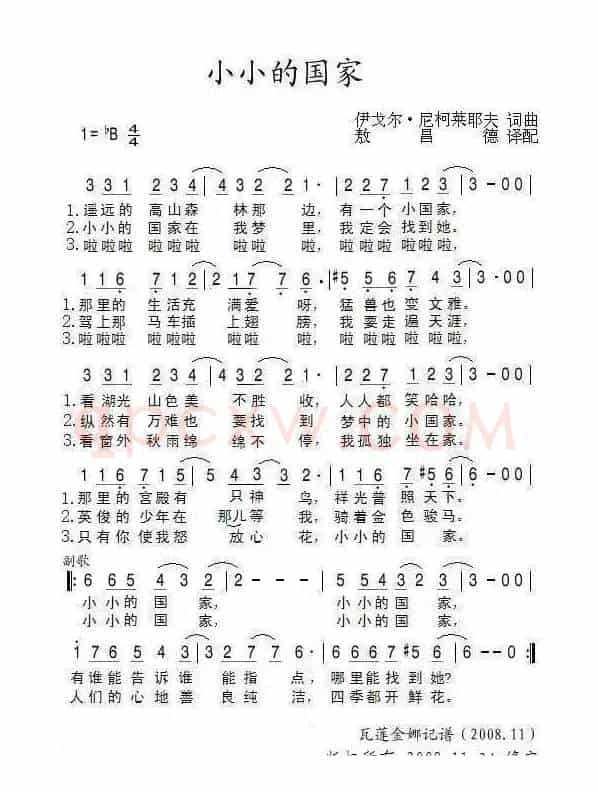 小小的国家
1=♭B 4/4
伊戈尔·尼柯莱耶夫 词曲
敖昌德 译配
3 3 1 2 3 4 | 4 3 3 2 2 1· | 2 2 7 1 2 3 | 3 - 0 0 |
1.遥远的 高山森 林那 边, 有一个 小国家,
2.小小的 国家在 我梦 里, 我定会 找到她。
3.啦啦啦 啦啦啦 啦啦 啦, 啦啦啦 啦啦啦,
1 1 6 7 1 2 | 2 1 1 7 7 6· | #5 5 6 7 4 3 | 3 - 0 0 |
1.那里的 生活充 满爱 呀, 猛兽也 变文雅。
2.驾上那 马车插 上翅 膀, 我要走 遍天涯,
3.啦啦啦 啦啦啦 啦啦 啦, 啦啦啦 啦啦啦。
3 3 1 2 3 4 | 4 3 3 2 2 1· | 2 2 7 1 2 3 | 3 - 0 0 |
1.看湖光 山色美 不胜 收, 人人都 笑哈哈,
2.纵然有 万难也 要找 到 梦中的 小国家。
3.看窗外 秋雨绵 绵不 停, 我孤独 坐在家。
1 1 6 7 1 5 | 5 4 3 3 2 2 1· | 1 1 7 #5 6 | 6 - 0 0 |
1.那里的宫殿有 只神 鸟, 祥光普 照天下。
2.英俊的少年在 那儿等 我, 骑着金 色骏马。
3.只有你使我怒 放心 花, 小小的 国 家。
副歌
‖: 6 6 5 4 3 2 | 2 - - - | 5 5 4 3 2 3 | 3 - - - |
小小的 国 家, 小小的 国 家,
小小的 国 家, 小小的 国 家,
1 7 6 5 4 3 | 3 2 7 7 6· | 6 7 7 6 #5 6 | 6 - 0 0 :‖
有谁能 告诉谁 能指 点, 哪里能 找到她?
人们的 心地善 良纯 洁, 四季都 开鲜花。
瓦莲金娜记谱(2008.11)